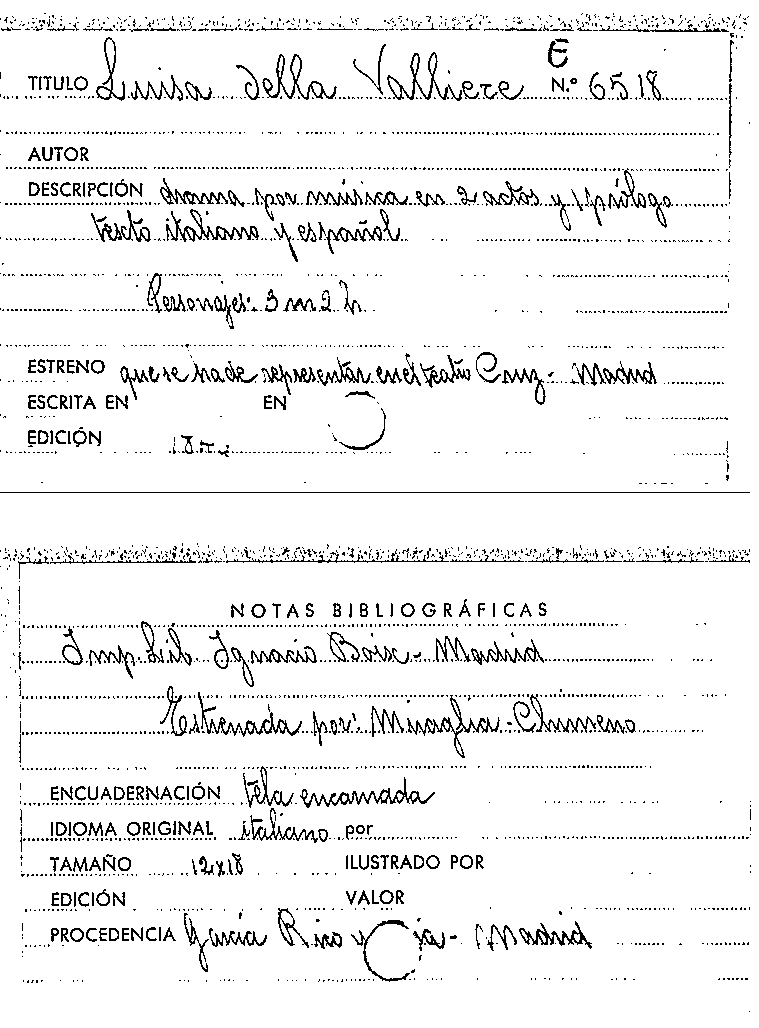 E
TITULO Luisa della Valliere N.° 6518
AUTOR
DESCRIPCIÓN drama por música en 2 actos y 1 prólogo
texto italiano y español
Personajes: 3 m 2 h
ESTRENO que se ha de representar en el teatro Cruz - Madrid
ESCRITA EN EN
EDICIÓN
NOTAS BIBLIOGRÁFICAS
Imp. Lib. Ignacio Boix - Madrid
Estrenada por: Miraglia - Chimeno
ENCUADERNACIÓN tela encarnada
IDIOMA ORIGINAL italiano por
TAMAÑO 12x18 ILUSTRADO POR
EDICIÓN VALOR
PROCEDENCIA García Rico y - Madrid